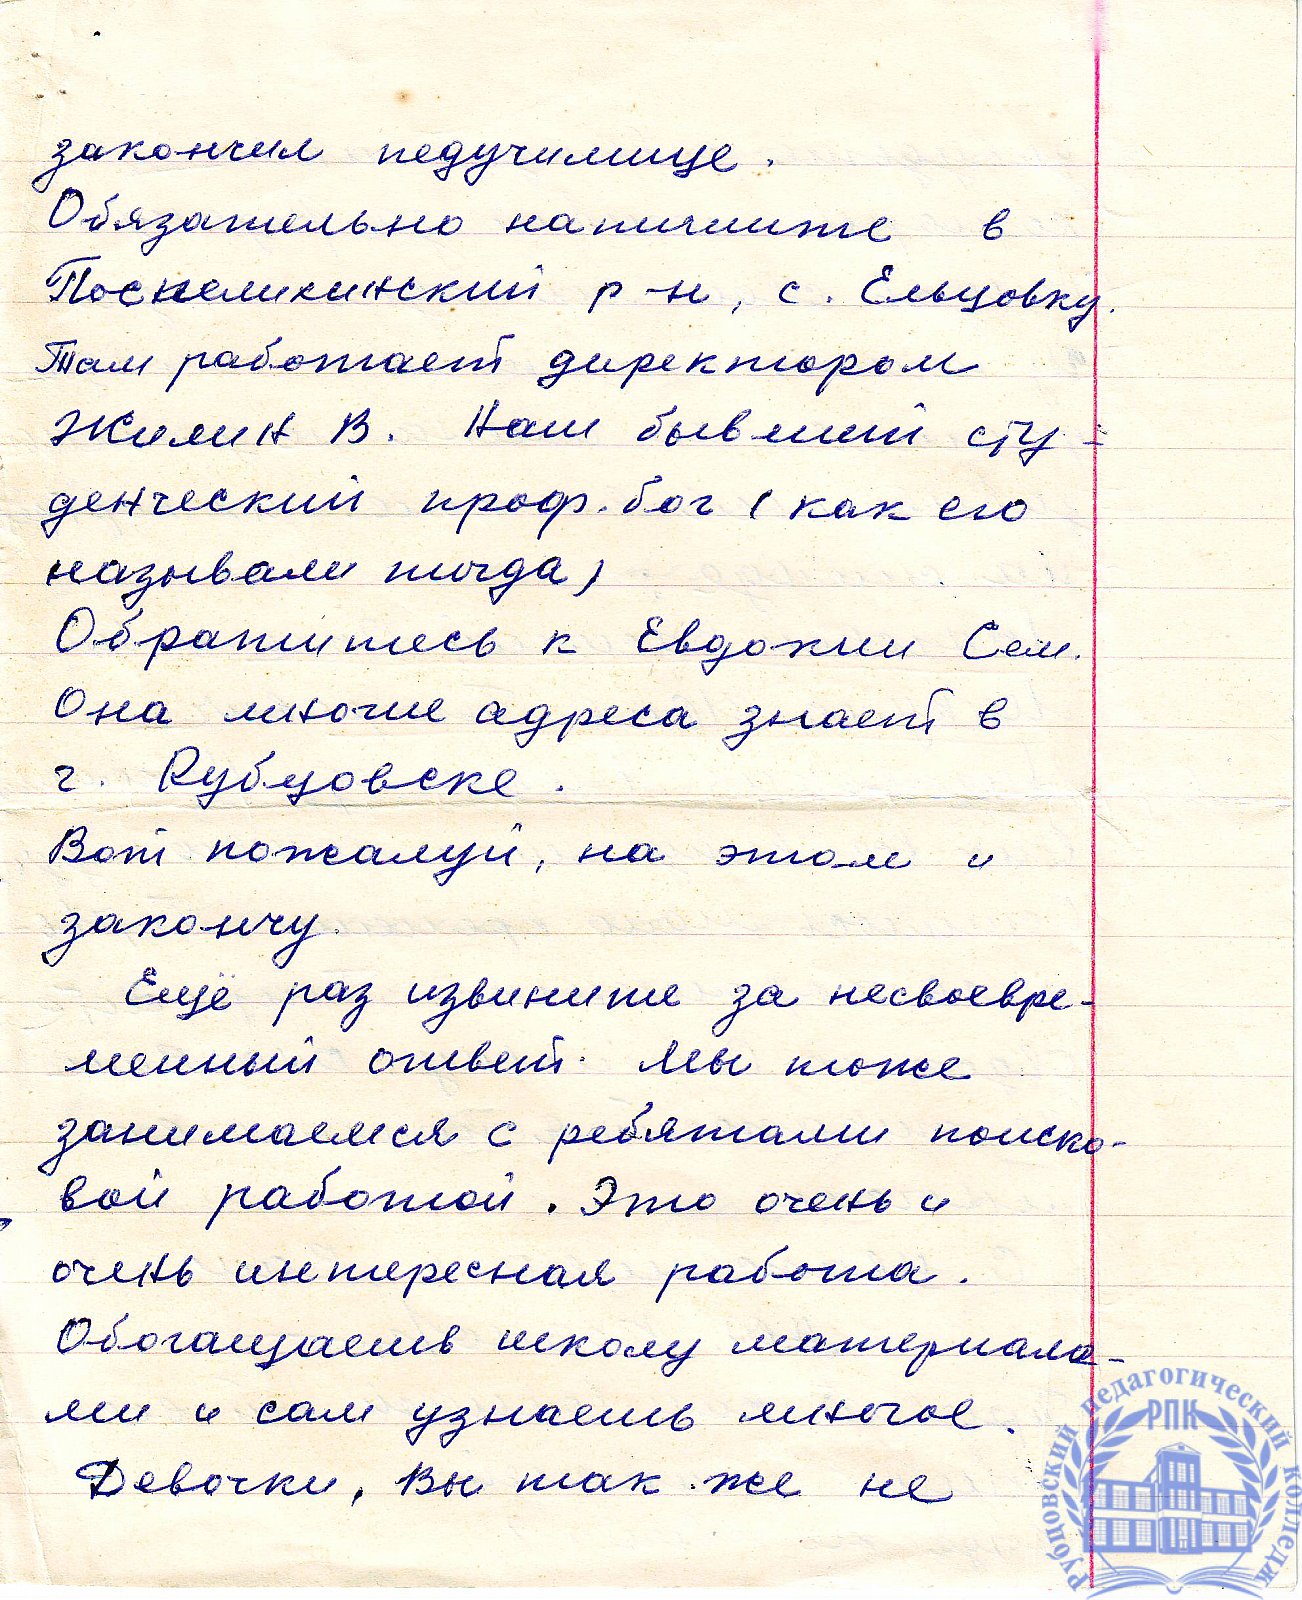 закончил педучилище.
Обязательно напишите в
Поспелихинский р-н, с. Ельцовку.
Там работает директором
Жилин В. Наш бывший сту-
денческий проф.бог (как его
называли тогда)
Обратитесь к Евдокии Сем.
Она многие адреса знает в
г. Рубцовске.
Вот пожалуй, на этом и
закончу.
Ещё раз извините за несвоевре-
менный ответ. Мы тоже
занимаемся с ребятами поиско-
вой работой. Это очень и
очень интересная работа.
Обогащаешь школу материала-
ми и сам узнаешь многое.
Девочки, Вы так же не
Рубцовский педагогический колледж
РПК